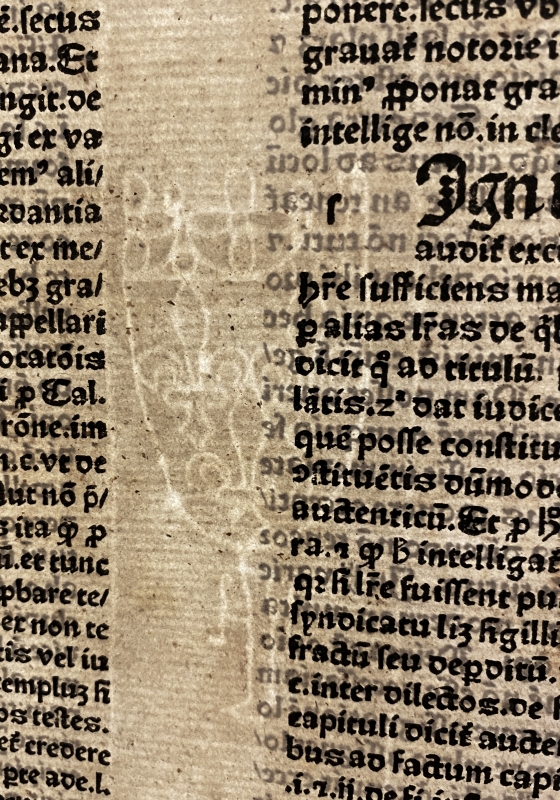 é.secus
ana.Et
ngit.de
gi ex va
em⁹ ali/
rdantia
t ex me/
ebꝫ gra/
appellari
ocatōis
i ꝑ Cal.
rōne.im
n.c.vt de
aut nō p̄/
s ita ꝙ ꝑ
ū.et tunc
pbare te/
er non te
tis vel iu
templuꝫ si
os testes.
et credere
pte ade.l.
ponere.secus vb
grauat notorie i
min⁹ ꝓponat gra
intellige nō.in cl
Igni
audit exc
hr̄e sufficiens ma
ꝑ alias lr̄as de q
dicit ꝙ ad titulū.
lātis.2ᵃ dat iudic
quē posse constitu
ↄstituētis dūmodo
autenticū.Et ꝑ h
ra.⁊ ꝙ ħ intelligat
qꝛ si lr̄e fuissent pu
syndicatu liꝫ sigilli
fractū seu deꝑditū.
c.inter dilectos.de
capituli dicit aucte
bus ad factum capi
.i.⁊.ii.de